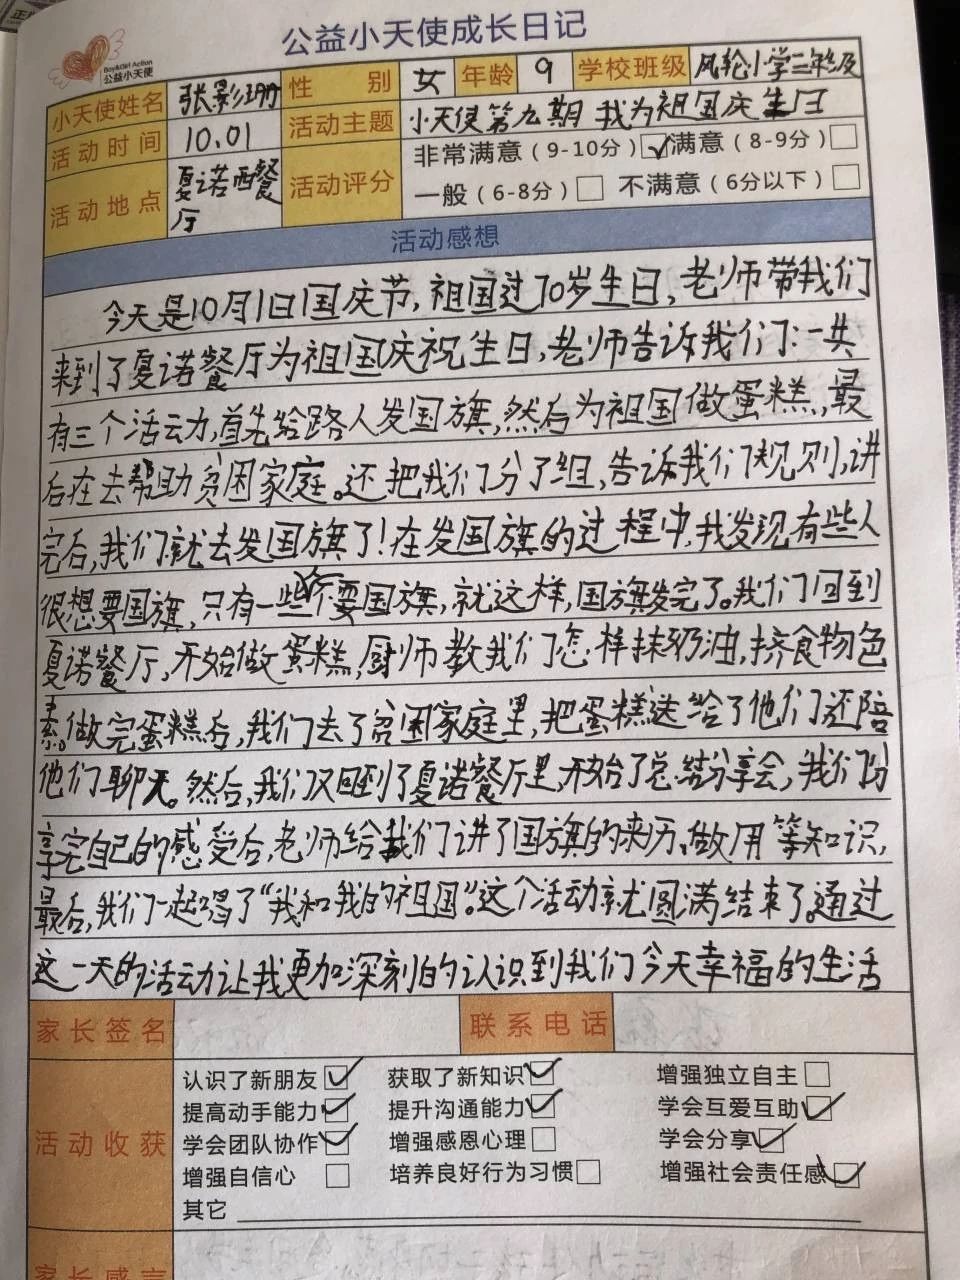 公益小天使成长日记
Boy&Girl Action
公益小天使
小天使姓名 张影 性别 女 年龄 9 学校班级 风轮小学三年级
活动时间 10.01 活动主题 小天使第九期 我为祖国庆生日
活动地点 夏诺西餐厅 活动评分 非常满意(9-10分) 满意(8-9分)
一般(6-8分) 不满意(6分以下)
活动感想
今天是10月1日国庆节,祖国过70岁生日,老师带我们
来到了夏诺餐厅为祖国庆祝生日,老师告诉我们:一共
有三个活动,首先给路人发国旗,然后为祖国做蛋糕,最
后在去帮助贫困家庭。还把我们分了组,告诉我们规则,讲
完后,我们就去发国旗了!在发国旗的过程中,我发现有些人
很想要国旗,只有一些不要国旗,就这样,国旗发完了。我们回到
夏诺餐厅,开始做蛋糕,厨师教我们怎样抹奶油,挤食物色
素。做完蛋糕后,我们去了贫困家庭里,把蛋糕送给了他们还陪
他们聊天。然后,我们又回到了夏诺餐厅里,开始了总结分享会,我们分
享完自己的感受后,老师给我们讲了国旗的来历、做用等知识,
最后,我们一起唱了“我和我的祖国”。这个活动就圆满结束了。通过
这一天的活动让我更加深刻的认识到我们今天幸福的生活
家长签名 联系电话
活动收获 认识了新朋友 获取了新知识 增强独立自主
提高动手能力 提升沟通能力 学会互爱互助
学会团队协作 增强感恩心理 学会分享
增强自信心 培养良好行为习惯 增强社会责任感
其它
家长感言